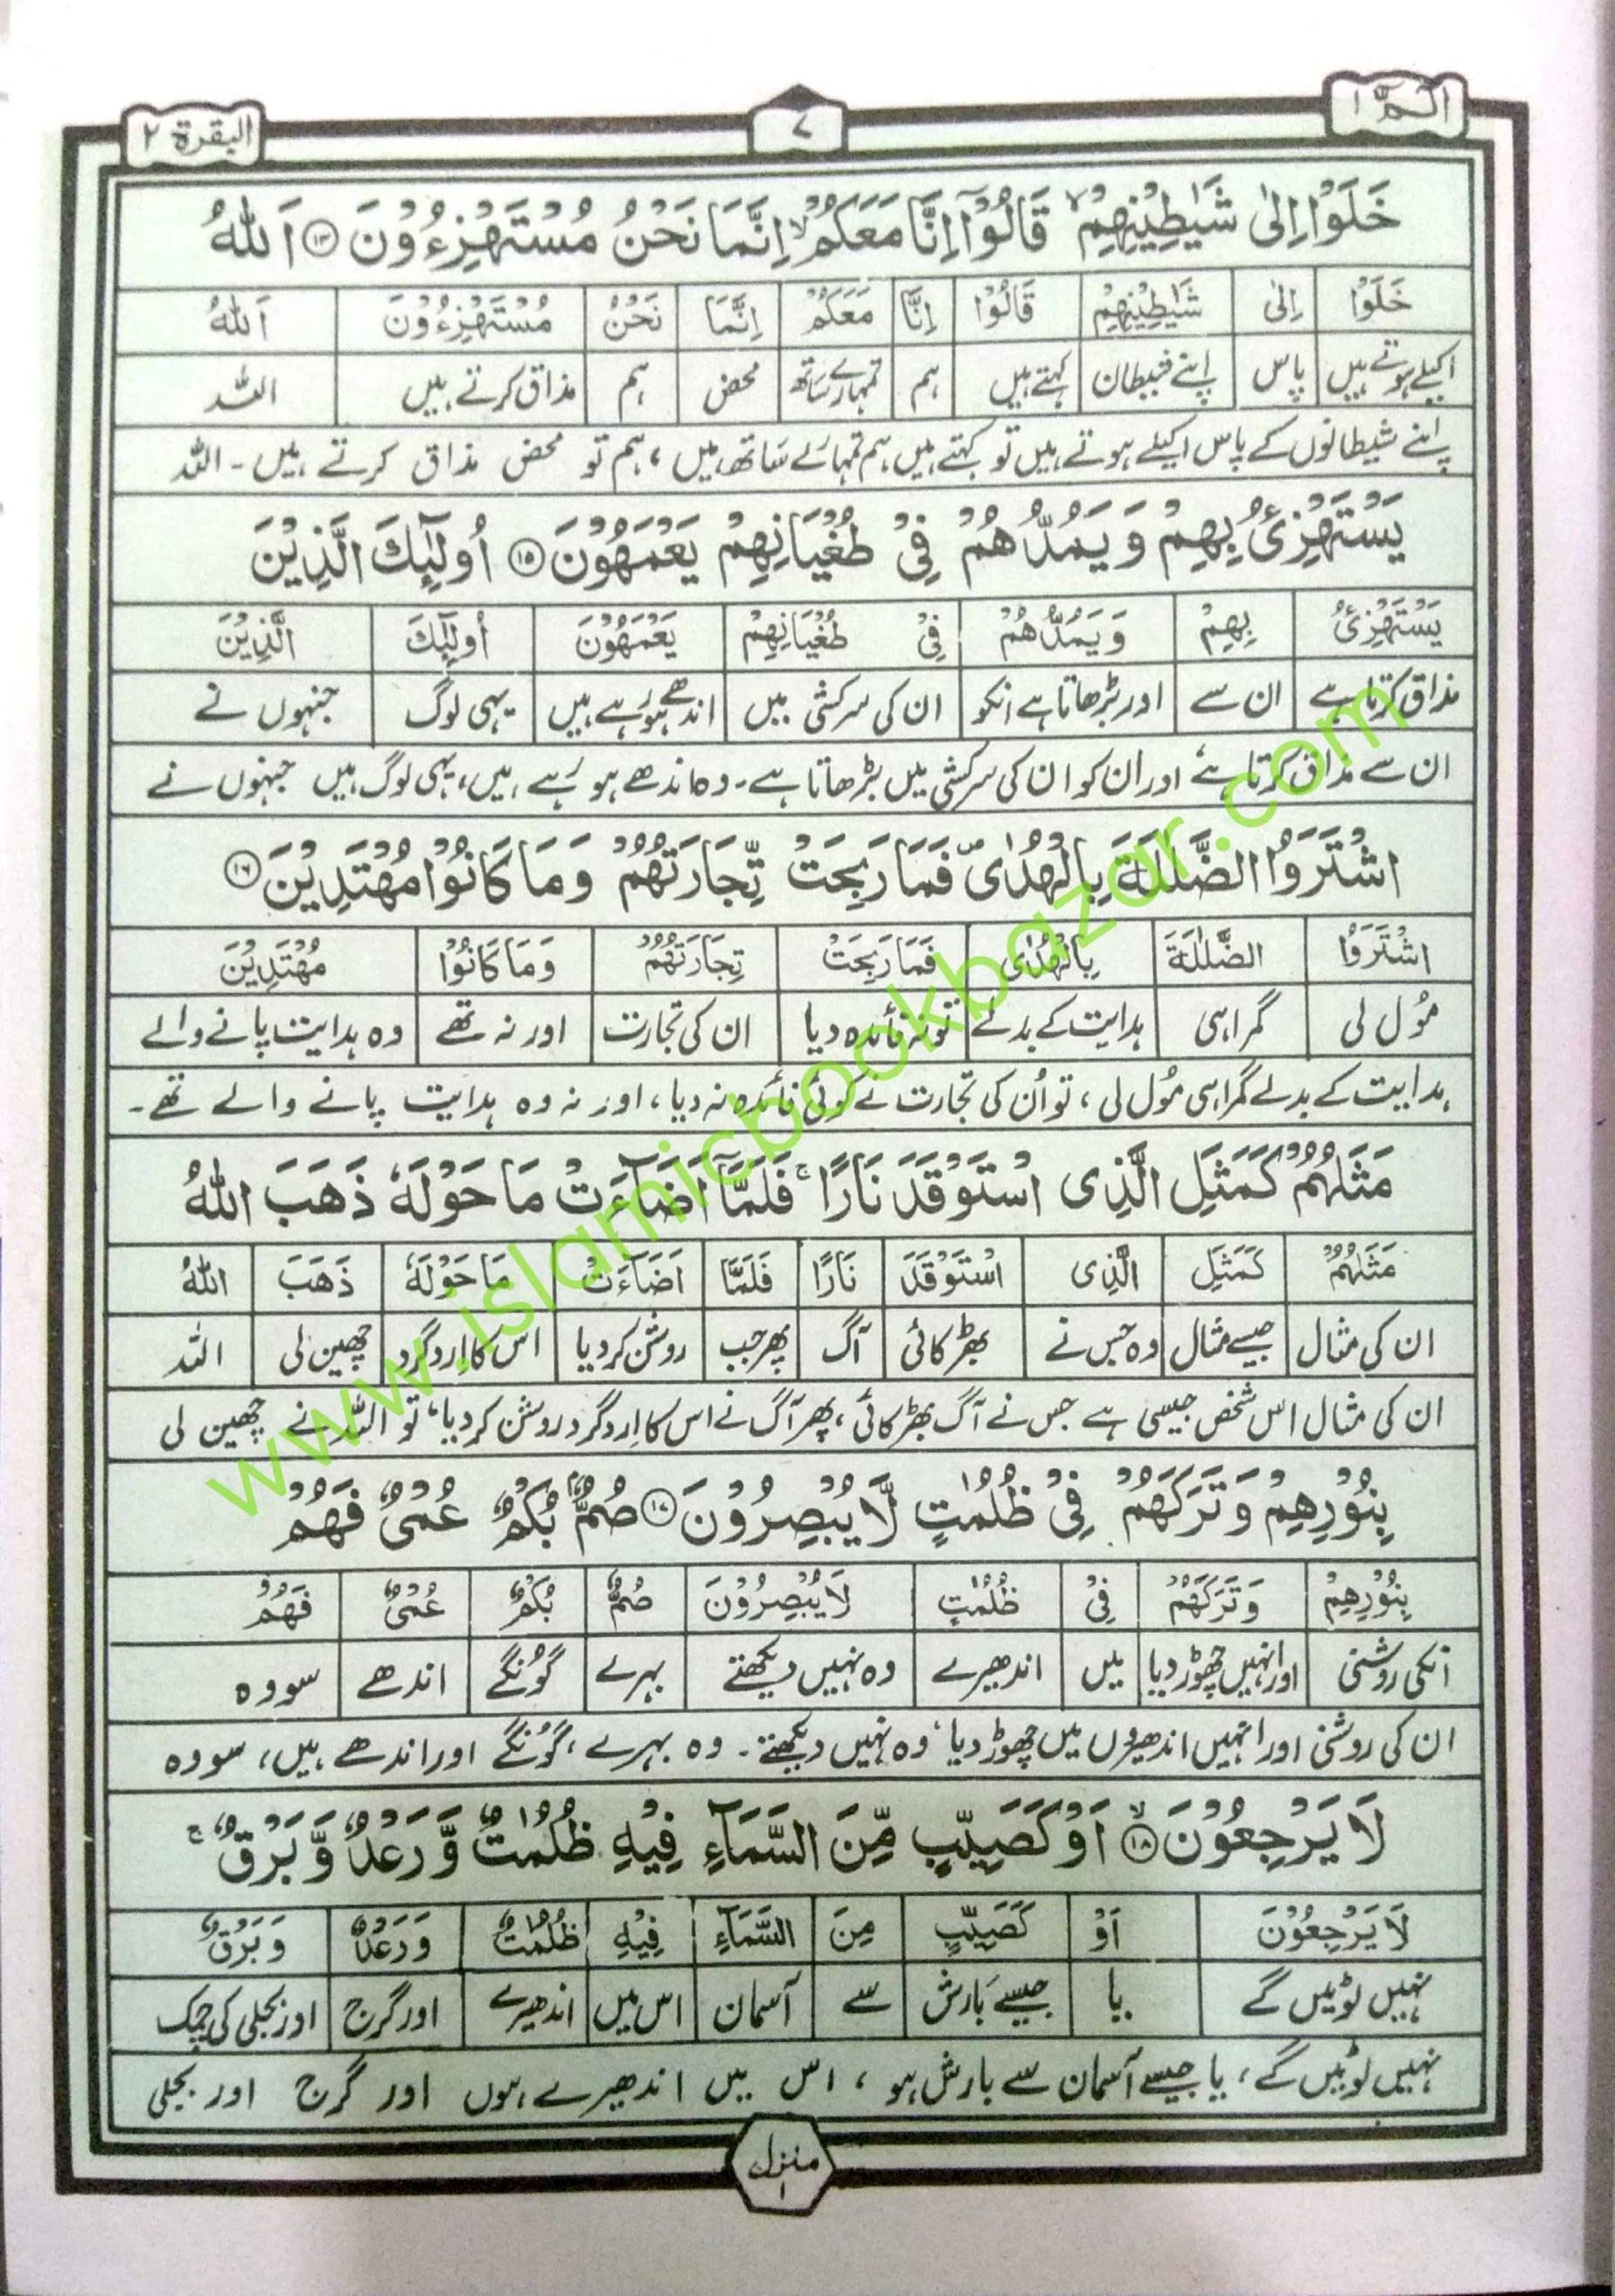 الٓمّٓ ۱
۷
البقرة ۲
خَلَوْا اِلٰى شَيٰطِيْنِهِمْ ۙ قَالُوْٓا اِنَّا مَعَكُمْ ۙ اِنَّمَا نَحْنُ مُسْتَهْزِءُوْنَ ۱۴ اَللّٰهُ
خَلَوْا اِلٰى شَيٰطِيْنِهِمْ قَالُوْا اِنَّا مَعَكُمْ اِنَّمَا نَحْنُ مُسْتَهْزِءُوْنَ اَللّٰهُ
اکیلے ہوتے ہیں پاس اپنے شیطان کہتے ہیں ہم تمہارے ساتھ محض ہم مذاق کرتے ہیں اللہ
اپنے شیطانوں کے پاس اکیلے ہوتے ہیں تو کہتے ہیں ہم تمہارے ساتھ ہیں ، ہم تو محض مذاق کرتے ہیں۔ اللہ
يَسْتَهْزِئُ بِهِمْ وَيَمُدُّهُمْ فِيْ طُغْيَانِهِمْ يَعْمَهُوْنَ ۱۵ اُولٰٓئِكَ الَّذِيْنَ
يَسْتَهْزِئُ بِهِمْ وَيَمُدُّهُمْ فِيْ طُغْيَانِهِمْ يَعْمَهُوْنَ اُولٰٓئِكَ الَّذِيْنَ
مذاق کرتا ہے ان سے اور بڑھاتا ہے انکو ان کی سرکشی میں اندھے ہو رہے ہیں یہی لوگ جنہوں نے
ان سے مذاق کرتا ہے اور ان کو ان کی سرکشی میں بڑھاتا ہے۔ وہ اندھے ہو رہے ہیں، یہی لوگ ہیں جنہوں نے
اشْتَرَوُا الضَّلٰلَةَ بِالْهُدٰى ۪ فَمَا رَبِحَتْ تِّجَارَتُهُمْ وَمَا كَانُوْا مُهْتَدِيْنَ ۱۶
اشْتَرَوُا الضَّلٰلَةَ بِالْهُدٰى فَمَا رَبِحَتْ تِجَارَتُهُمْ وَمَا كَانُوْا مُهْتَدِيْنَ
مول لی گمراہی ہدایت کے بدلے تو نہ فائدہ دیا ان کی تجارت اور نہ تھے وہ ہدایت پانے والے
ہدایت کے بدلے گمراہی مول لی ، تو اُن کی تجارت نے کوئی فائدہ نہ دیا ، اور نہ وہ ہدایت پانے والے تھے۔
مَثَلُهُمْ كَمَثَلِ الَّذِى اسْتَوْقَدَ نَارًا ۚ فَلَمَّآ اَضَآءَتْ مَا حَوْلَهٗ ذَهَبَ اللّٰهُ
مَثَلُهُمْ كَمَثَلِ الَّذِى اسْتَوْقَدَ نَارًا فَلَمَّا اَضَآءَتْ مَا حَوْلَهٗ ذَهَبَ اللّٰهُ
ان کی مثال جیسے مثال وہ جس نے بھڑکائی آگ پھر جب روشن کر دیا اس کا اردگرد چھین لی اللہ
ان کی مثال اس شخص جیسی ہے جس نے آگ بھڑکائی ، پھر آگ نے اس کا اردگرد روشن کر دیا، تو اللہ نے چھین لی
بِنُوْرِهِمْ وَتَرَكَهُمْ فِيْ ظُلُمٰتٍ لَّا يُبْصِرُوْنَ ۱۷ صُمٌّۢ بُكْمٌ عُمْىٌ فَهُمْ
بِنُوْرِهِمْ وَتَرَكَهُمْ فِيْ ظُلُمٰتٍ لَا يُبْصِرُوْنَ صُمٌّ بُكْمٌ عُمْىٌ فَهُمْ
انکی روشنی اور انہیں چھوڑ دیا میں اندھیرے وہ نہیں دیکھتے بہرے گونگے اندھے سو وہ
ان کی روشنی اور انہیں اندھیروں میں چھوڑ دیا، وہ نہیں دیکھتے۔ وہ بہرے ، گونگے اور اندھے ہیں، سو وہ
لَا يَرْجِعُوْنَ ۱۸ ۙ اَوْ كَصَيِّبٍ مِّنَ السَّمَآءِ فِيْهِ ظُلُمٰتٌ وَّرَعْدٌ وَّبَرْقٌ ۚ
لَا يَرْجِعُوْنَ اَوْ كَصَيِّبٍ مِنَ السَّمَآءِ فِيْهِ ظُلُمٰتٌ وَرَعْدٌ وَبَرْقٌ
نہیں لوٹیں گے یا جیسے بارش سے آسمان اس میں اندھیرے اور گرج اور بجلی کی چمک
نہیں لوٹیں گے ، یا جیسے آسمان سے بارش ہو ، اس میں اندھیرے ہوں اور گرج اور بجلی
منزل ۱
www.islamicbookbazar.com